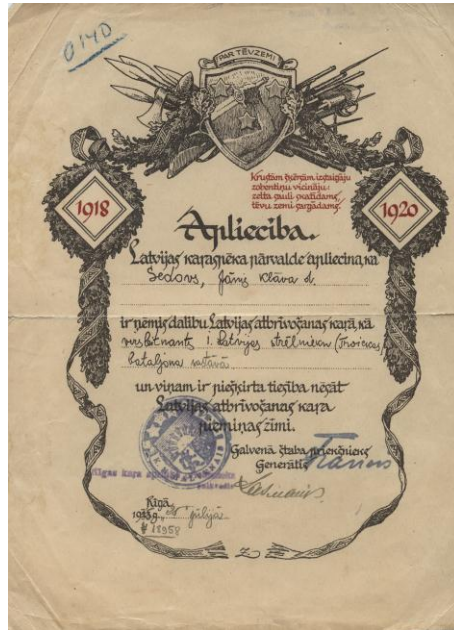 0140
PAR TĒVZEMI
1918
1920
Krustām šķērsām izstaigāju
zobentiņu vicināju:
zelta sauli
tēvu zemi sargādams.
Apliecība.
Latvijas karaspēka pārvalde apliecina, ka
Sedovs, Jānis Klāva d.
ir ņēmis dalību Latvijas atbrīvošanas karā, kā
virsleitnants 1. Latvijas strēlnieku (Troickas)
bataljona sastāvā
un viņam ir piešķirta tiesība nēsāt
Latvijas atbrīvošanas kara
piemiņas zīmi.
Galvenā štaba priekšnieks
Ģenerālis
Rīgas kara
Rīgā
jūlijā
# 18958